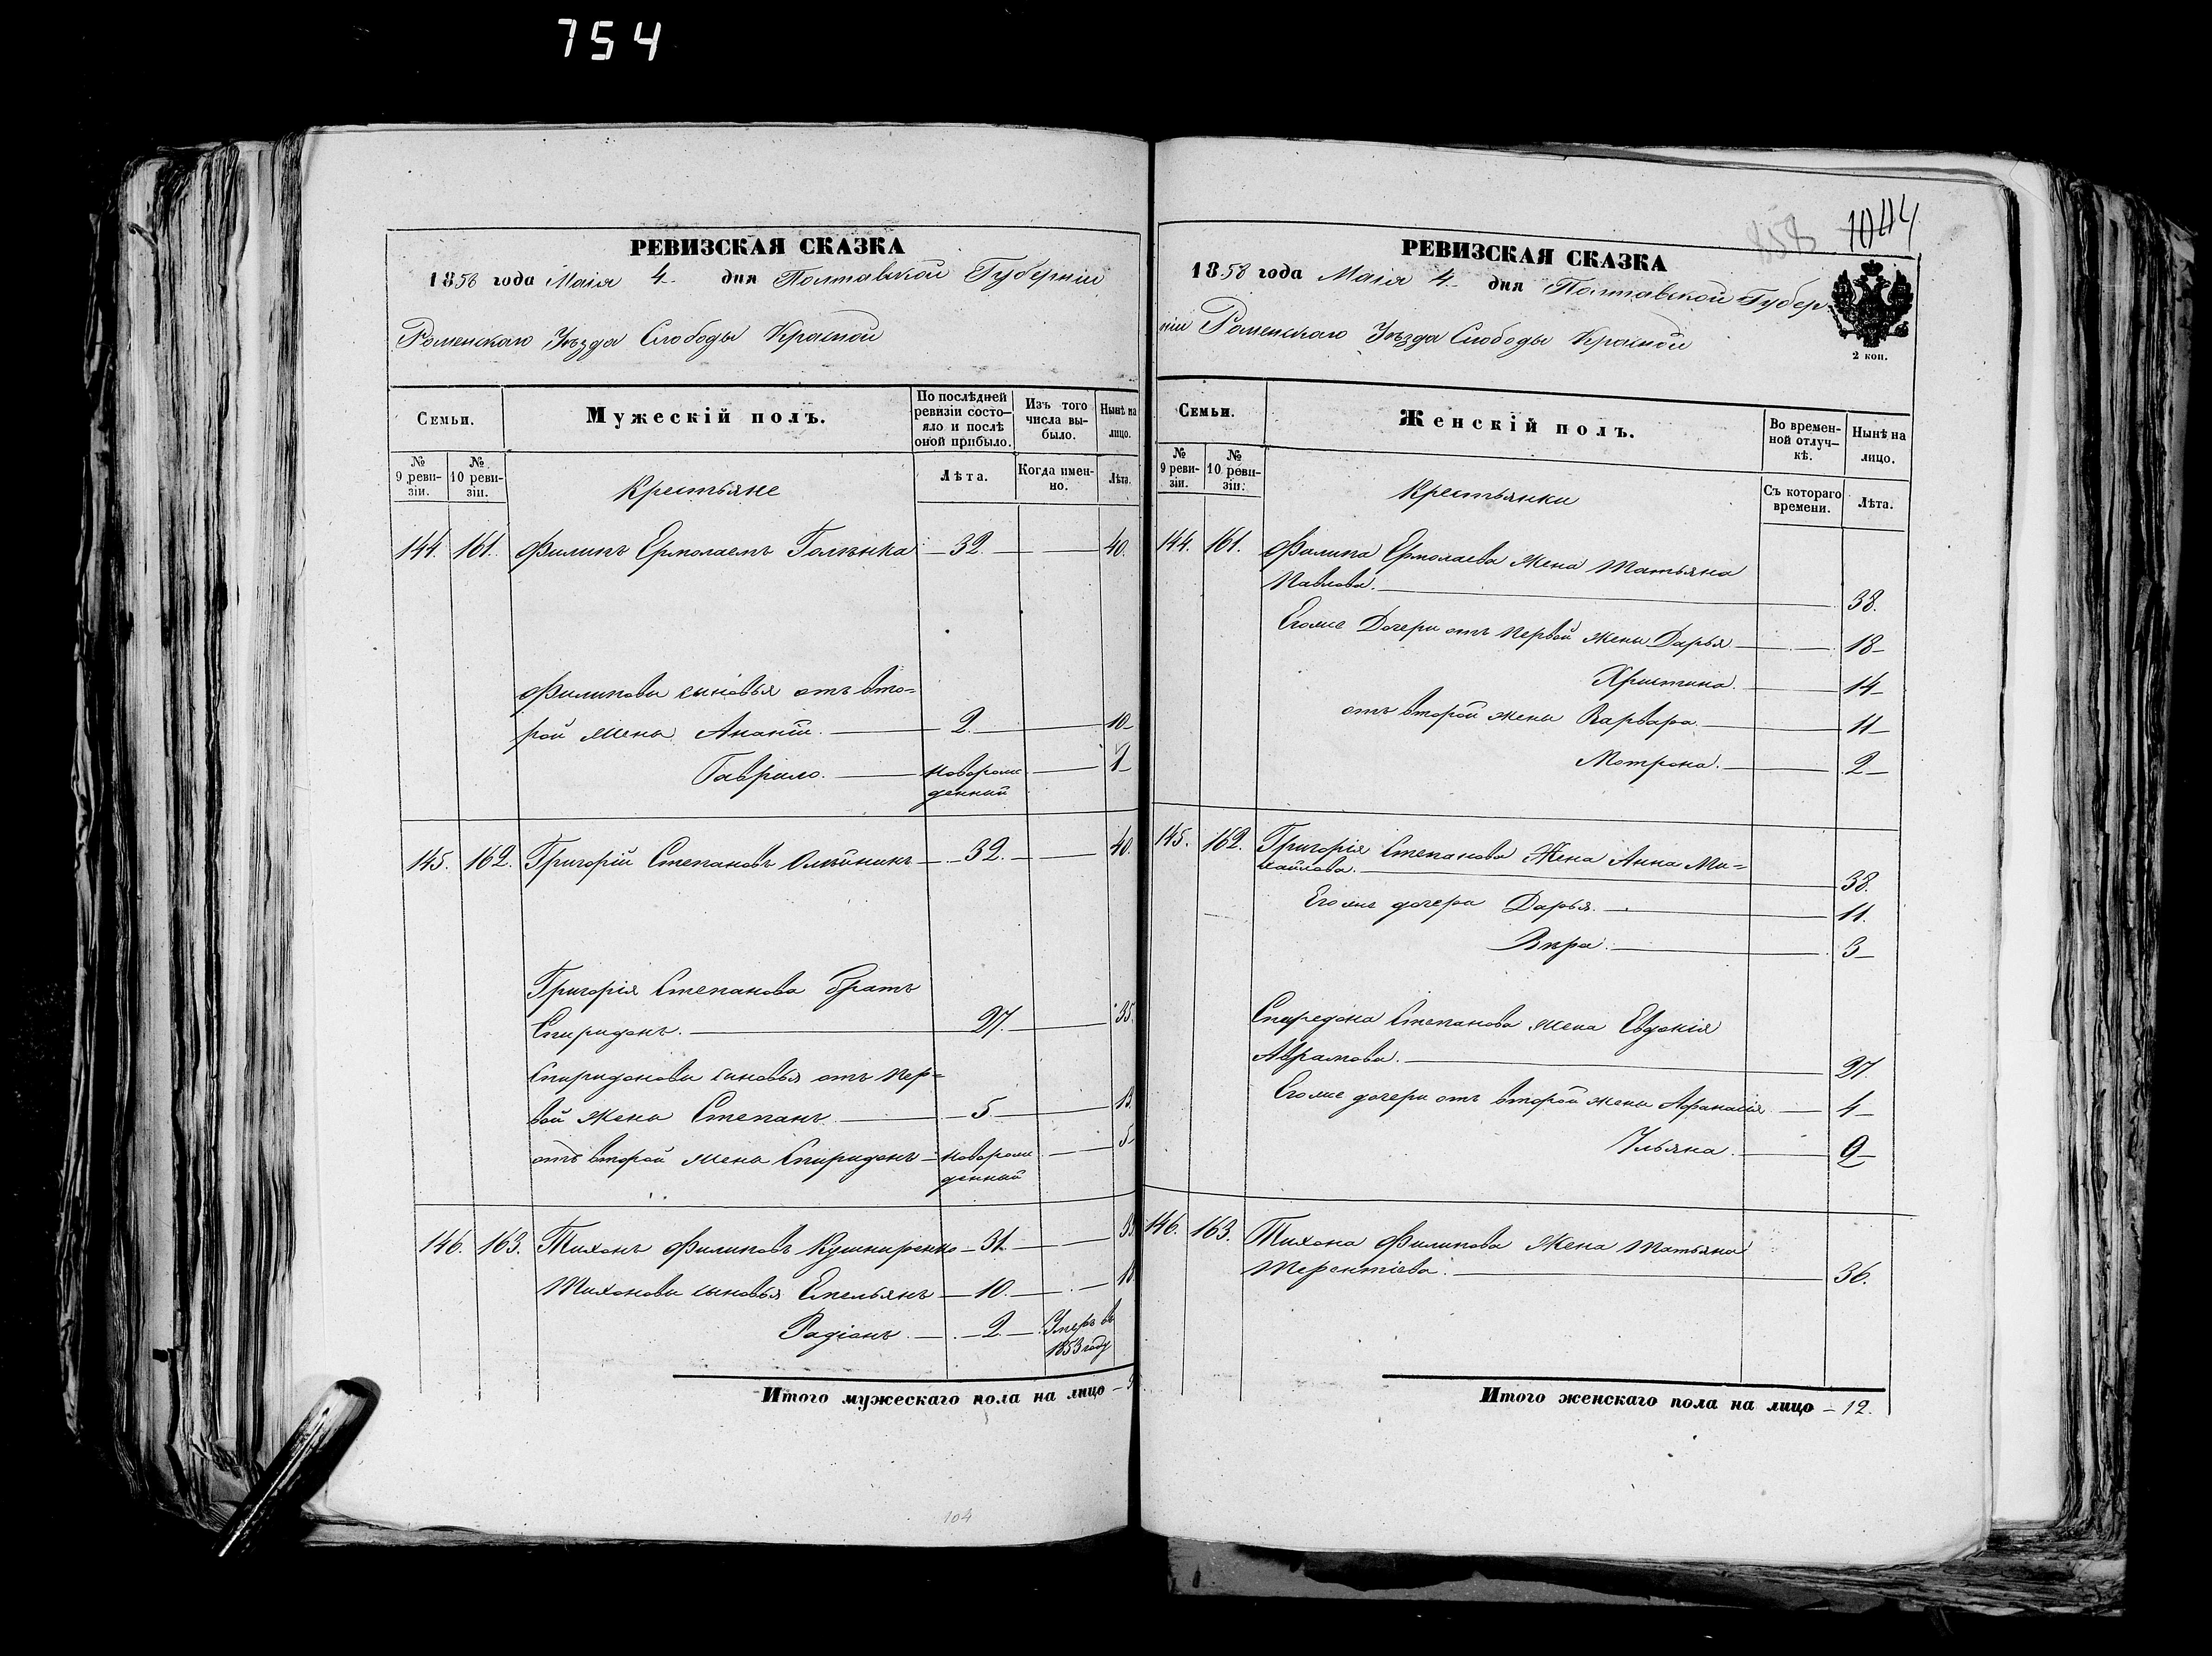 754
РЕВИЗСКАЯ СКАЗКА
1858 года Маія 4 дня Полтавской Губерніи
Роменскаго Уѣзда Слободы Красной
Семьи.
Мужескій полъ.
По послѣдней ревизіи состо-яло и послѣ оной прибыло.
Изъ того числа вы-было.
Нынѣ на лицо.
№ 9 реви-зіи.
№ 10 реви-зіи.
Крестьяне
Лѣта.
Когда имен-но.
Лѣта.
144. 161. Филипъ Ермолаевъ 32. 40.
Филиповы сыновья отъ вто=
рой жены Ананій. 2. 10
Гаврило. новорож 1
денный
145. 162. Григорій Степановъ Олѣйникъ 32. 40.
Григорія Степанова братъ
Спиридонъ. 27. 35.
Спиридоновы сыновья отъ пер=
вой жены Степанъ 5. 13
отъ второй жены Спиридонъ новорож 5
денный
146. 163. Тихонъ Филиповъ Кушниренко 31.
Тихоновы сыновья Емельянъ 10. 18
Радіонъ 2. Умеръ въ
1853 году
Итого мужескаго пола на лицо
104
858 1044
РЕВИЗСКАЯ СКАЗКА
1858 года Маія 4 дня Полтавской Губер
ніи Роменскаго Уѣзда Слободы Красной
2 коп.
Семьи.
Женскій полъ.
Во времен-ной отлуч-кѣ.
Нынѣ на лицо.
№ 9 реви-зіи.
№ 10 реви-зіи.
Крестьянки
Съ котораго времени.
Лѣта.
144. 161. Филипа Ермолаева жена Татьяна
Павлова. 38.
Егоже Дочери отъ первой жены Дарья 18
Христина. 14
отъ второй жены Варвара 11
Мотрона. 2
145. 162. Григорія Степанова Жена Анна Ми=
хайлова. 38.
Егоже дочери Дарья. 11.
Вѣра. 3
Спиредона Степанова жена Евдокія
Аврамова. 27
Егоже дочери отъ второй жены Афанасія 4
Ульяна. 2
146. 163. Тихона Филипова Жена Татьяна
Терентіева. 36.
Итого женскаго пола на лицо 12.